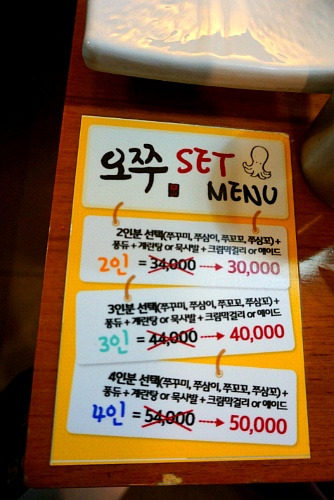 오쭈 SET
MENU
2인분 선택(쭈꾸미, 쭈삼이, 쭈꼬꼬, 쭈삼꼬) +
퐁듀 + 계란탕 or 묵사발 + 크림막걸리 or 에이드
2인 = 34,000 → 30,000
3인분 선택(쭈꾸미, 쭈삼이, 쭈꼬꼬, 쭈삼꼬) +
퐁듀 + 계란탕 or 묵사발 + 크림막걸리 or 에이드
3인 = 44,000 → 40,000
4인분 선택(쭈꾸미, 쭈삼이, 쭈꼬꼬, 쭈삼꼬) +
퐁듀 + 계란탕 or 묵사발 + 크림막걸리 or 에이드
4인 = 54,000 → 50,000